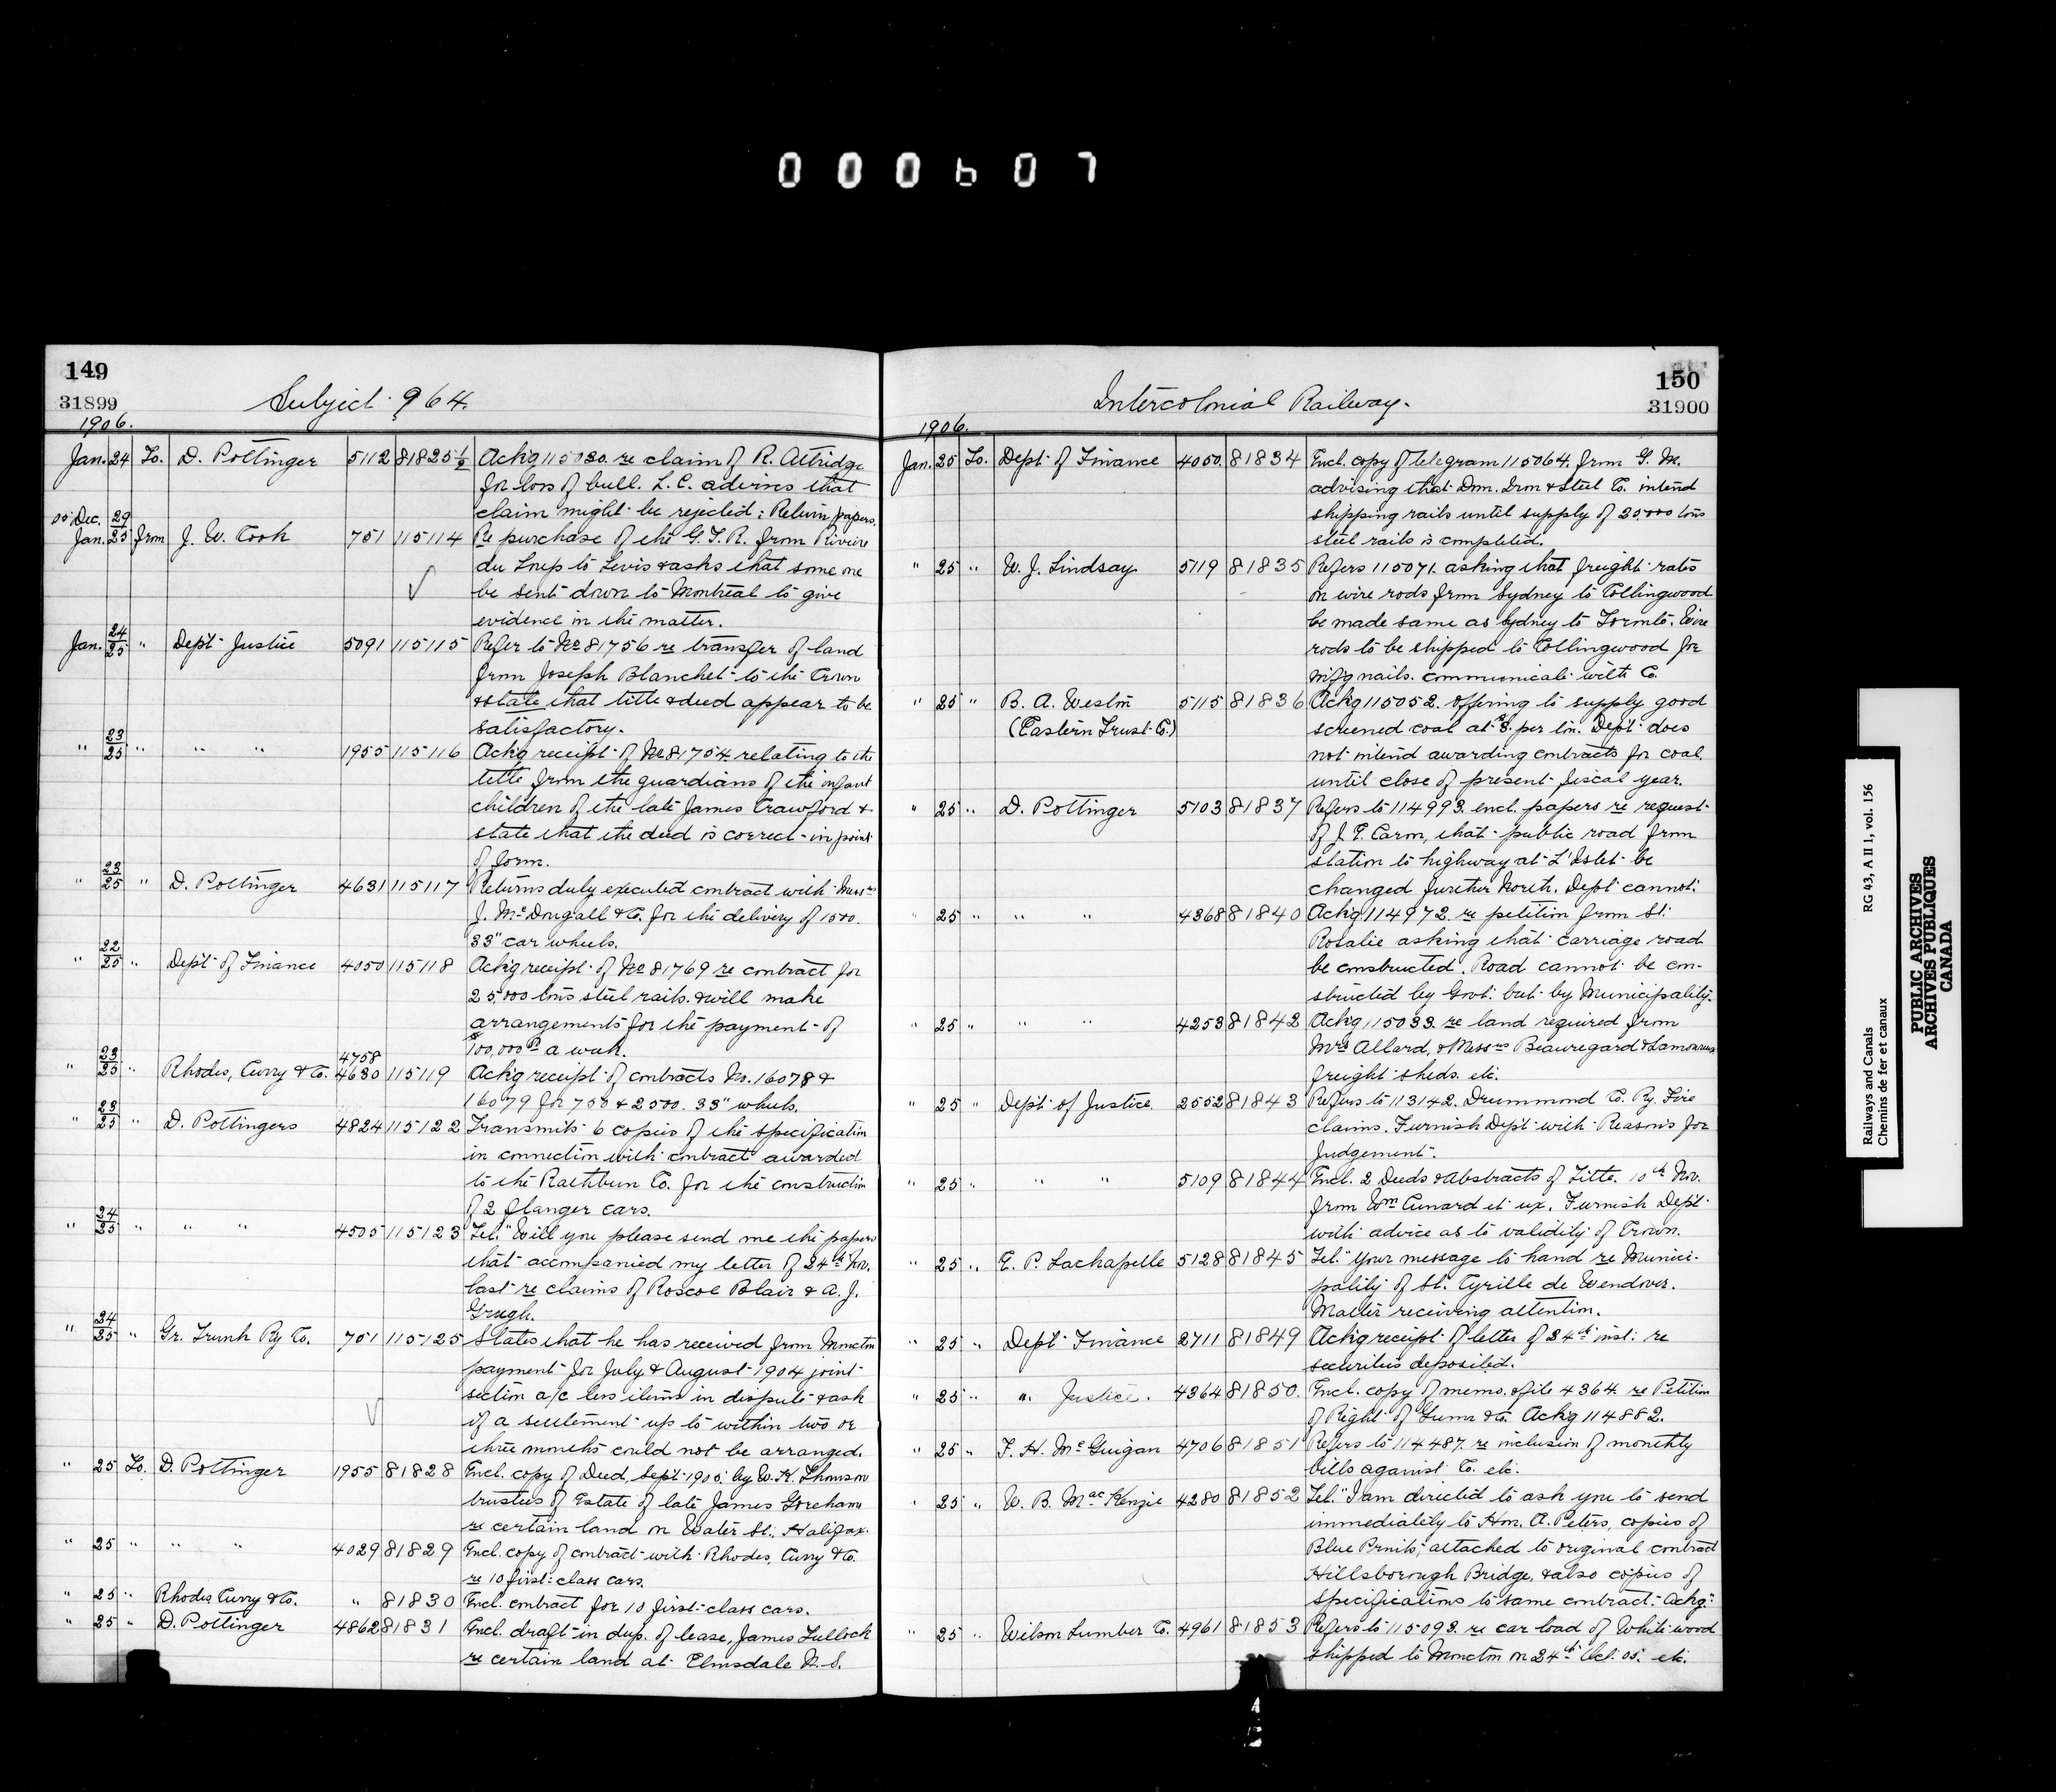 000607
149
31899
Subject 964.
1906.
Jan. 24 To. D. Pottinger 5112 81825½ Ackg 115020. re claim of R. Attridge
for loss of bull. L. C. advises that
claim might be rejected: Return papers.
05 Dec. 29
Jan. 25 from J. W. Cook 751 115114 Re purchase of the G. T. R. from Riviere
du Loup to Levis & asks that some one
be sent down to Montreal to give
evidence in the matter.
Jan. 24/25 " Dept Justice 5091 115115 Refer to No 81756 re transfer of land
from Joseph Blanchet to the Crown
& state that title & deed appear to be
satisfactory.
" 23/25 " " " 1955 115116 Ackg receipt of No 81754 relating to the
title from the guardians of the infant
children of the late James Crawford &
state that the deed is correct in point
of form.
" 23/25 " D. Pottinger 4631 115117 Returns duly executed contract with Messrs
J. McDougall & Co. for the delivery of 1500.
33" car wheels.
" 22/25 " Dept of Finance 4050 115118 Ackg receipt of No 81769 re contract for
25,000 tons steel rails. & will make
arrangements for the payment of
$100,000 a week.
" 23/25 " Rhodes, Curry & Co. 4758
4630 115119 Ackg receipt of contracts No. 16078 &
16079 for 750 & 2500. 33" wheels.
" 23/25 " D. Pottingers 4824 115122 Transmits 6 copies of the specification
in connection with contract awarded
to the Rathbun Co. for the construction
of 2 flanger cars.
" 24/25 " " " 4505 115123 Tel. "Will you please send me the papers
that accompanied my letter of 24th Nov.
last re claims of Roscoe Blair & A. J.
Gough.
" 24/25 " Gr. Trunk Ry Co. 751 115125 States that he has received from Moncton
payment for July & August 1904 joint
section a/c less items in dispute & ask
if a settlement up to within two or
three months could not be arranged.
" 25 To. D. Pottinger 1955 81828 Encl. copy of Deed, Sept 1905 by W. K. Thomson
trustees of Estate of late James Goreham
re certain land on Water St., Halifax.
" 25 " " " 4029 81829 Encl. copy of contract with Rhodes, Curry & Co.
re 10 first class cars.
" 25 " Rhodes Curry & Co. " 81830 Encl. contract for 10 first class cars.
" 25 " D. Pottinger 4862 81831 Encl. draft in dup. of lease, James Tullock
re certain land at Elmsdale N. S.
150
31900
Intercolonial Railway.
1906.
Jan. 25 To. Dept of Finance 4050. 81834 Encl. copy of telegram 115064. from G. M.
advising that Dom. Iron & Steel Co. intend
shipping rails until supply of 25,000 tons
steel rails is completed.
" 25 " W. J. Lindsay 5119 81835 Refers 115071. asking that freight rates
on wire rods from Sydney to Collingwood
be made same as Sydney to Toronto. Wire
rods to be shipped to Collingwood for
m'f'g nails. communicate with Co.
" 25 " B. A. Weston 5115 81836 Ackg 115052. offering to supply good
(Eastern Trust Co.) screened coal at $3. per ton. Dept does
not intend awarding contracts for coal
until close of present fiscal year.
" 25 " D. Pottinger 5103 81837 Refers to 114993. encl. papers re request
of J. E. Caron, that public road from
station to highway at L'Islet be
changed further North. Dept cannot.
" 25 " " " 4368 81840 Ackg. 114972. re petition from St.
Rosalie asking that carriage road
be constructed. Road cannot be con-
structed by Govt. but by Municipality.
" 25 " " " 4253 81842 Ackg 115033. re land required from
Mrs Allard, & Messrs Beauregard & Lamoureux
freight sheds. etc.
" 25 " Dept of Justice 2552 81843 Refers to 113142. Drummond Co. Ry. Fire
claims. Furnish Dept with Reasons for
Judgement.
" 25 " " " 5109 81844 Encl. 2 Deeds & Abstracts of Title. 10th Nov.
from Wm Cunard et ux. Furnish Dept
with advice as to validity of Crown.
" 25 " E. P. Lachapelle 5128 81845 Tel. "Your message to hand re Munici-
pality of St. Cyrille de Wendover.
Matter receiving attention.
" 25 " Dept Finance 2711 81849 Ackg receipt of letter of 24th inst. re
securities deposited.
" 25 " " Justice. 4364 81850. Encl. copy of memo. & file 4364 re Petition
of Right of & Co. Ackg 114882.
" 25 " F. H. McGuigan 4706 81851 Refers to 114487. re inclusion of monthly
bills against Co. etc.
" 25 " W. B. MacKenzie 4280 81852 Tel. "I am directed to ask you to send
immediately to Hon. A. Peters, copies of
Blue Prints, attached to original contract
Hillsborough Bridge, & also copies of
specifications to same contract. Ackg."
" 25 " Wilson Lumber Co. 4961 81853 Refers to 115093. re car load of Whitewood
shipped to Moncton on 24th Oct. 05. etc.
Railways and Canals RG 43, A II 1, vol. 156
Chemins de fer et canaux
PUBLIC ARCHIVES
ARCHIVES PUBLIQUES
CANADA